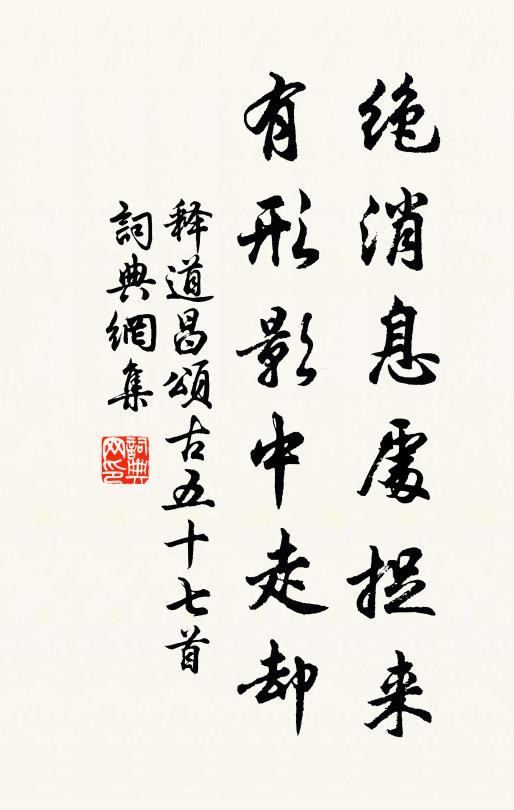 绝消息處捉来
有形影中走却
释道昌頌古五十七首
詞典網集
詞典網印